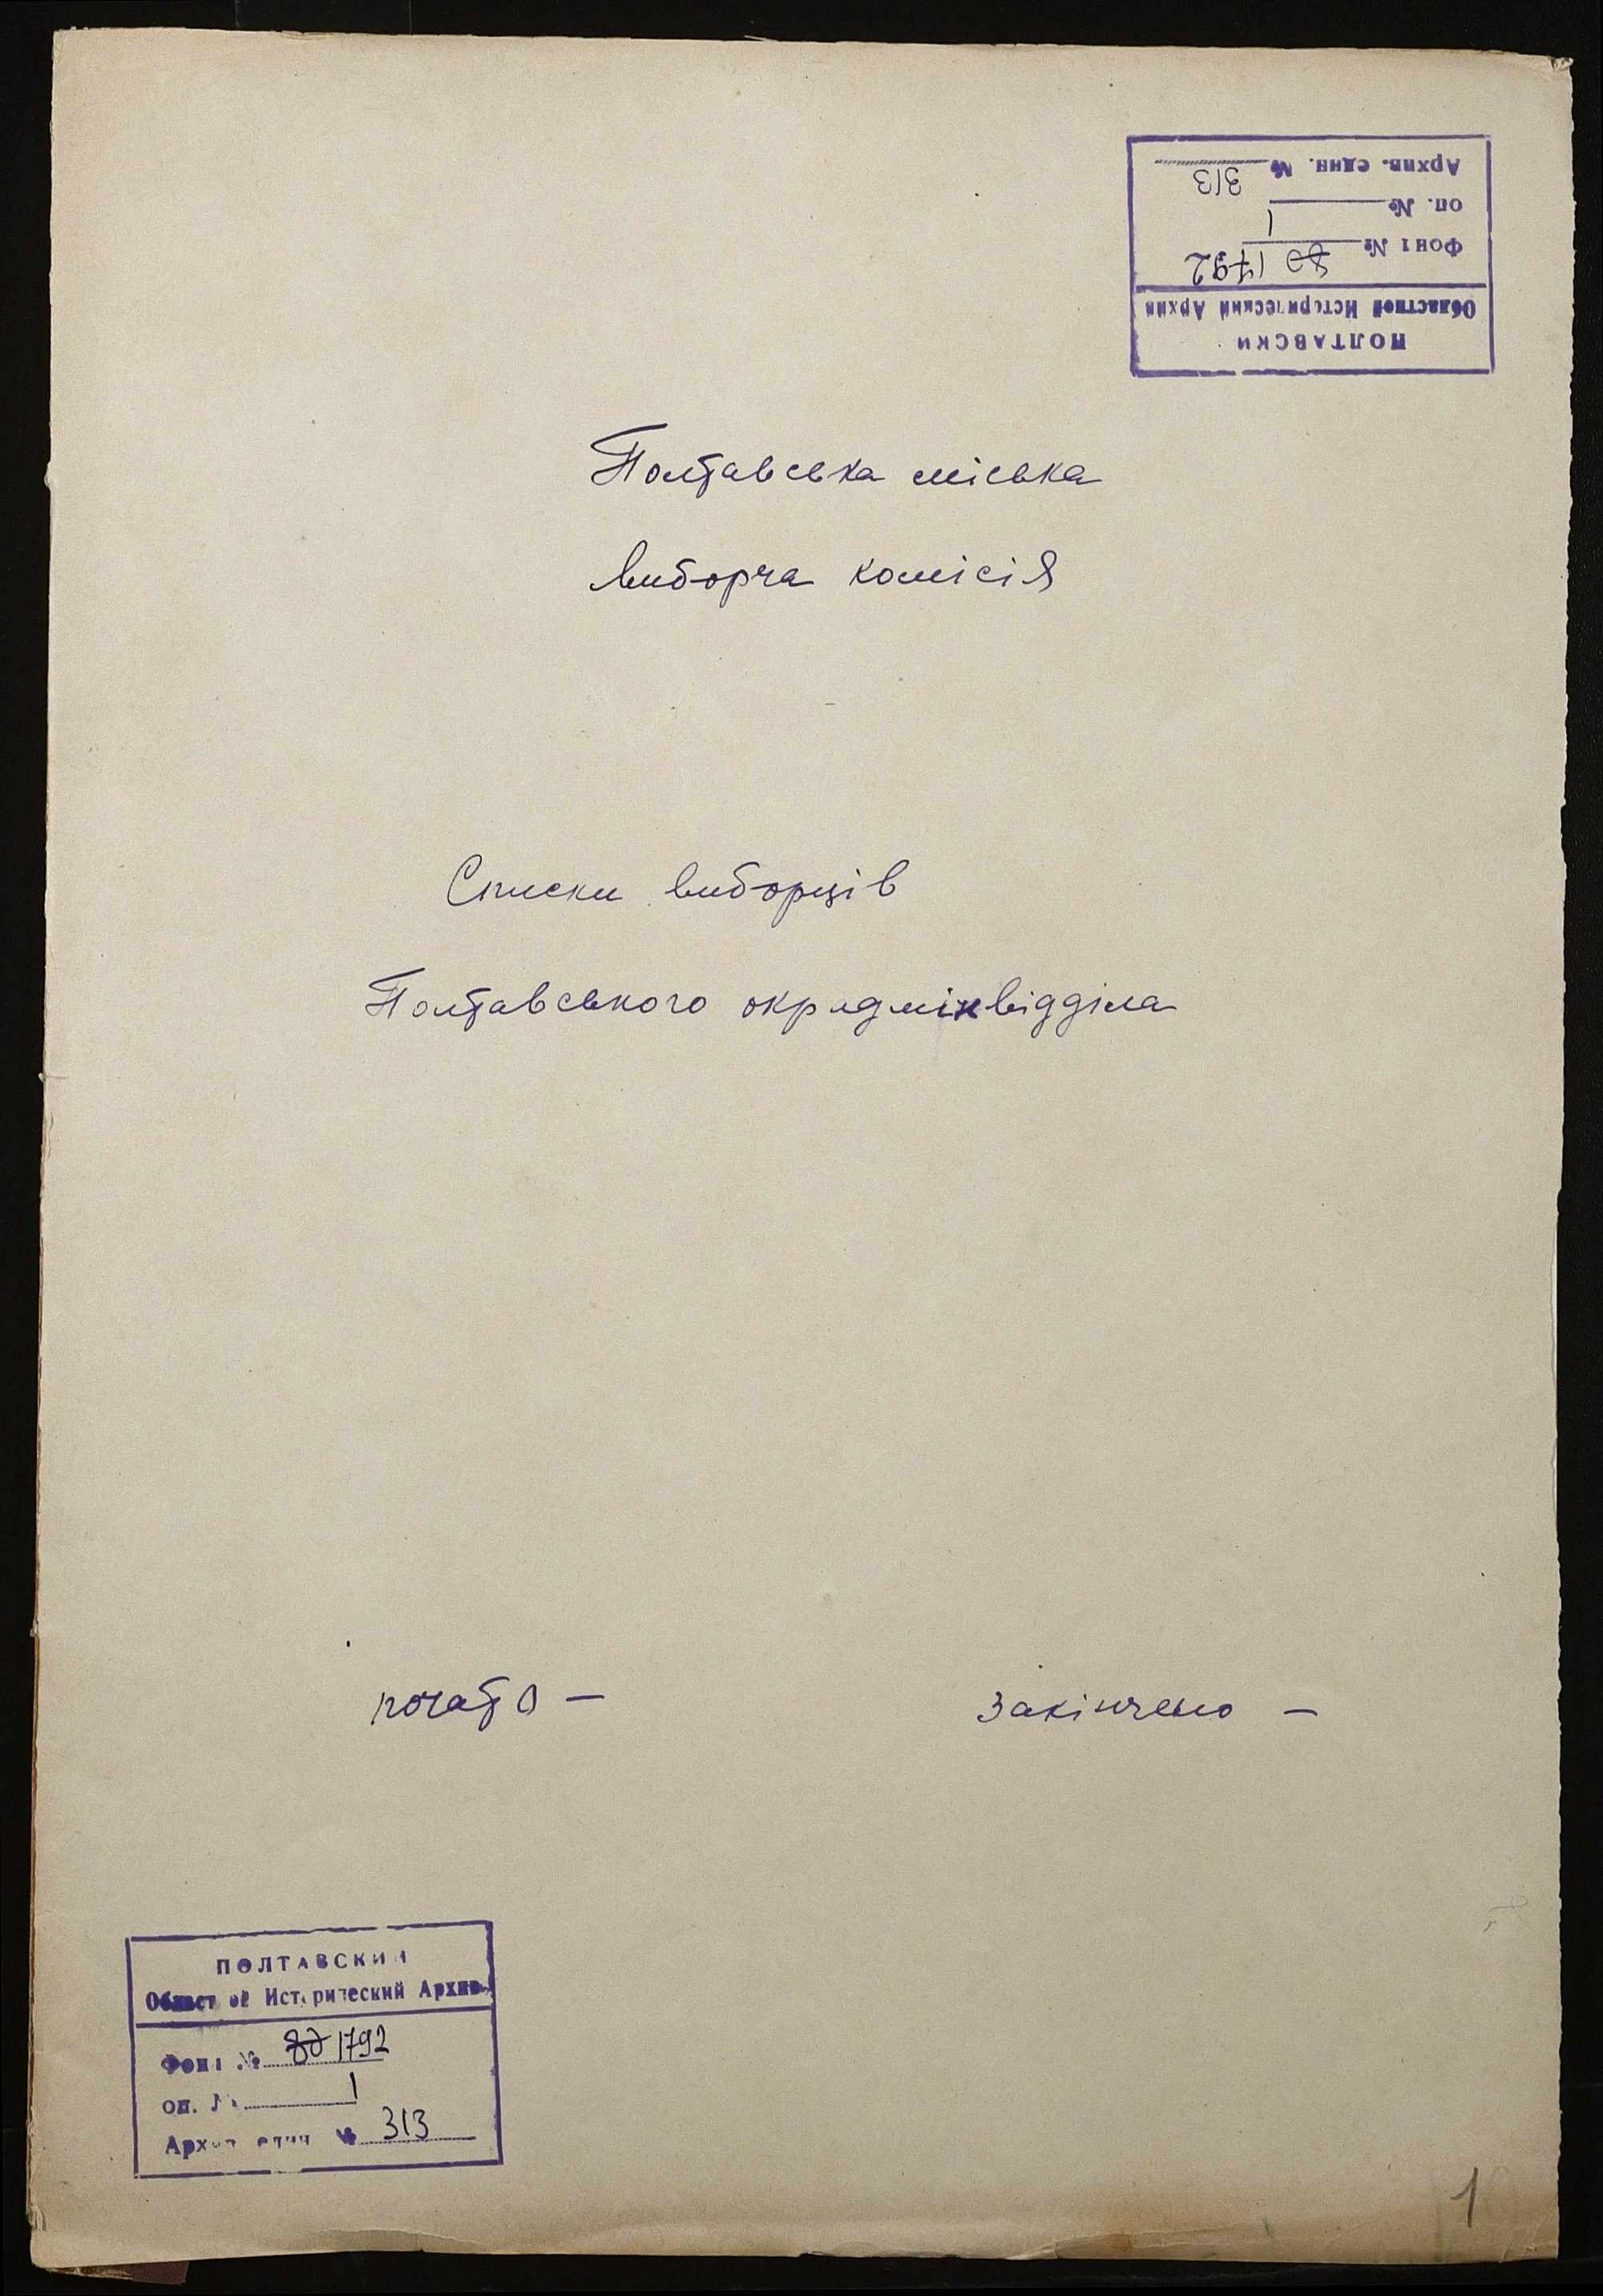 ПОЛТАВСКИ
Областной Исторический Архив
Фонд № 80 1792
оп. № 1
Архив. един. № 313
Полтавська міська
виборча комісія
Списки виборців
Полтавського окрадмінвідділа
почато –
закінчено –
ПОЛТАВСКИЙ
Областной Исторический Архив
Фонд № 80 1792
оп. № 1
Архив един № 313
1